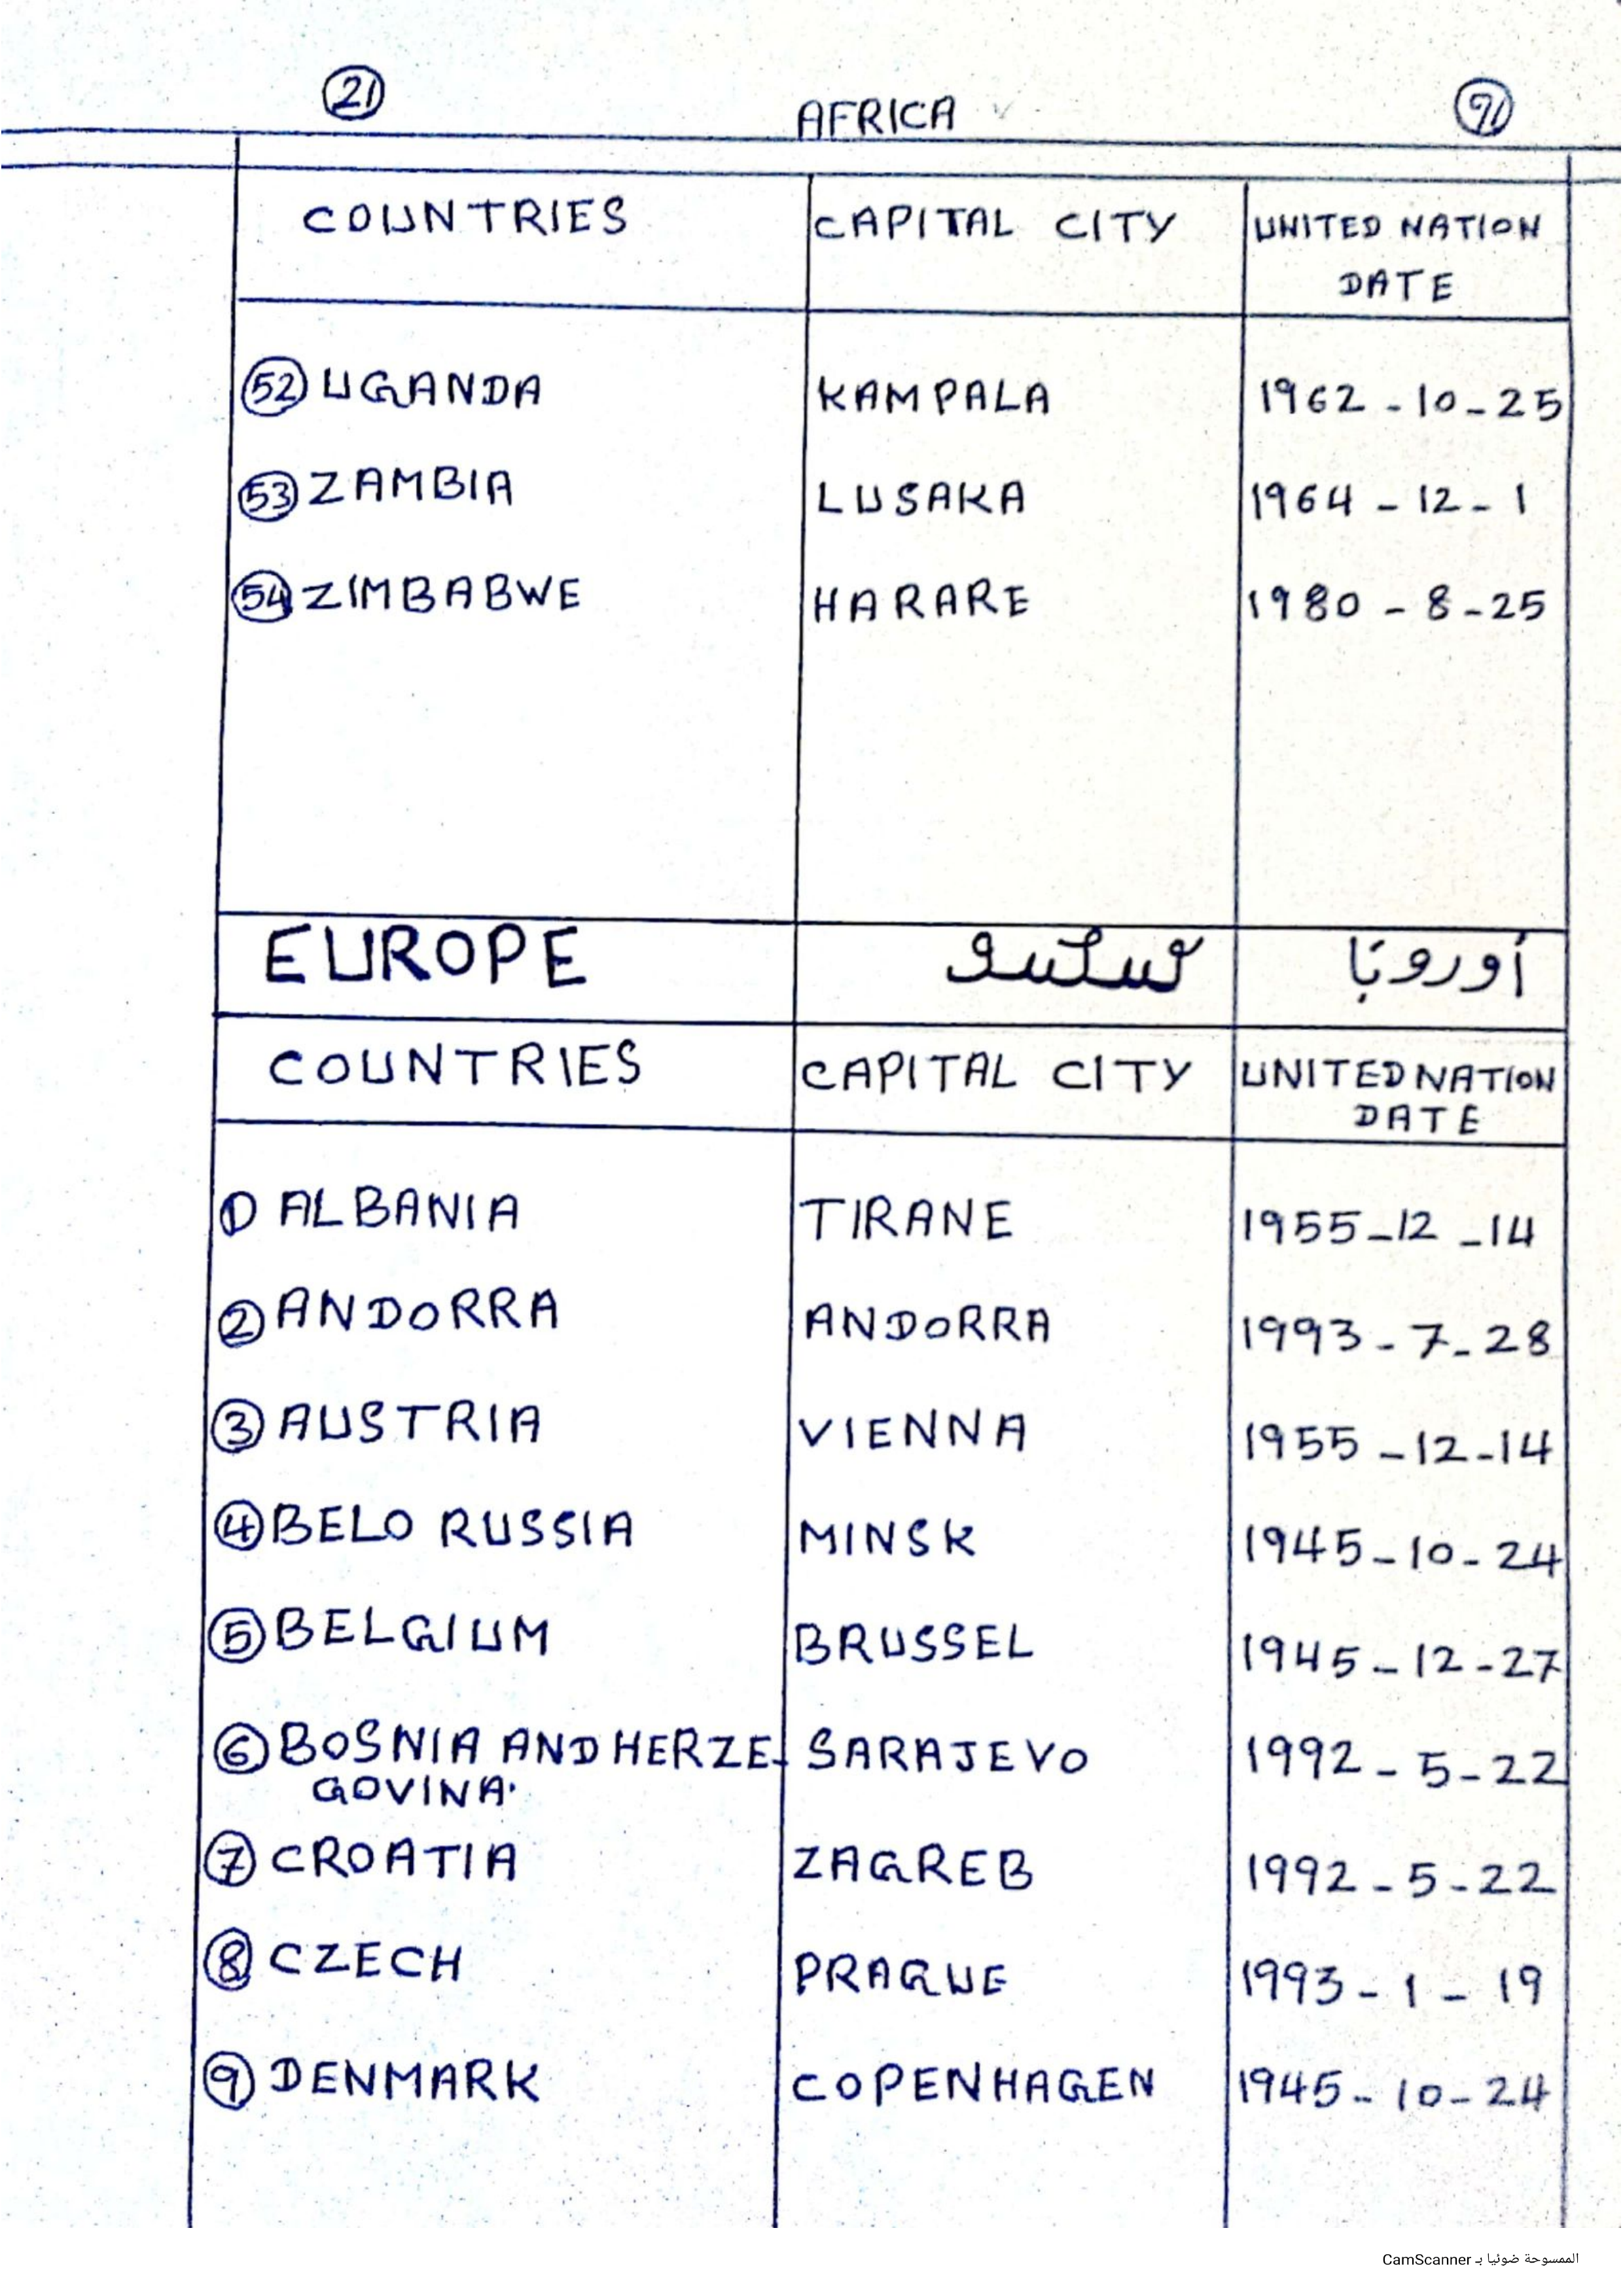 21 AFRICA 91
COUNTRIES CAPITAL CITY UNITED NATION
DATE
52 UGANDA KAMPALA 1962 - 10 - 25
53 ZAMBIA LUSAKA 1964 - 12 - 1
54 ZIMBABWE HARARE 1980 - 8 - 25
EUROPE أوروبا
COUNTRIES CAPITAL CITY UNITED NATION
DATE
1 ALBANIA TIRANE 1955 - 12 - 14
2 ANDORRA ANDORRA 1993 - 7 - 28
3 AUSTRIA VIENNA 1955 - 12 - 14
4 BELO RUSSIA MINSK 1945 - 10 - 24
5 BELGIUM BRUSSEL 1945 - 12 - 27
6 BOSNIA AND HERZE- SARAJEVO 1992 - 5 - 22
GOVINA.
7 CROATIA ZAGREB 1992 - 5 - 22
8 CZECH PRAGUE 1993 - 1 - 19
9 DENMARK COPENHAGEN 1945 - 10 - 24
الممسوحة ضوئيا بـ CamScanner